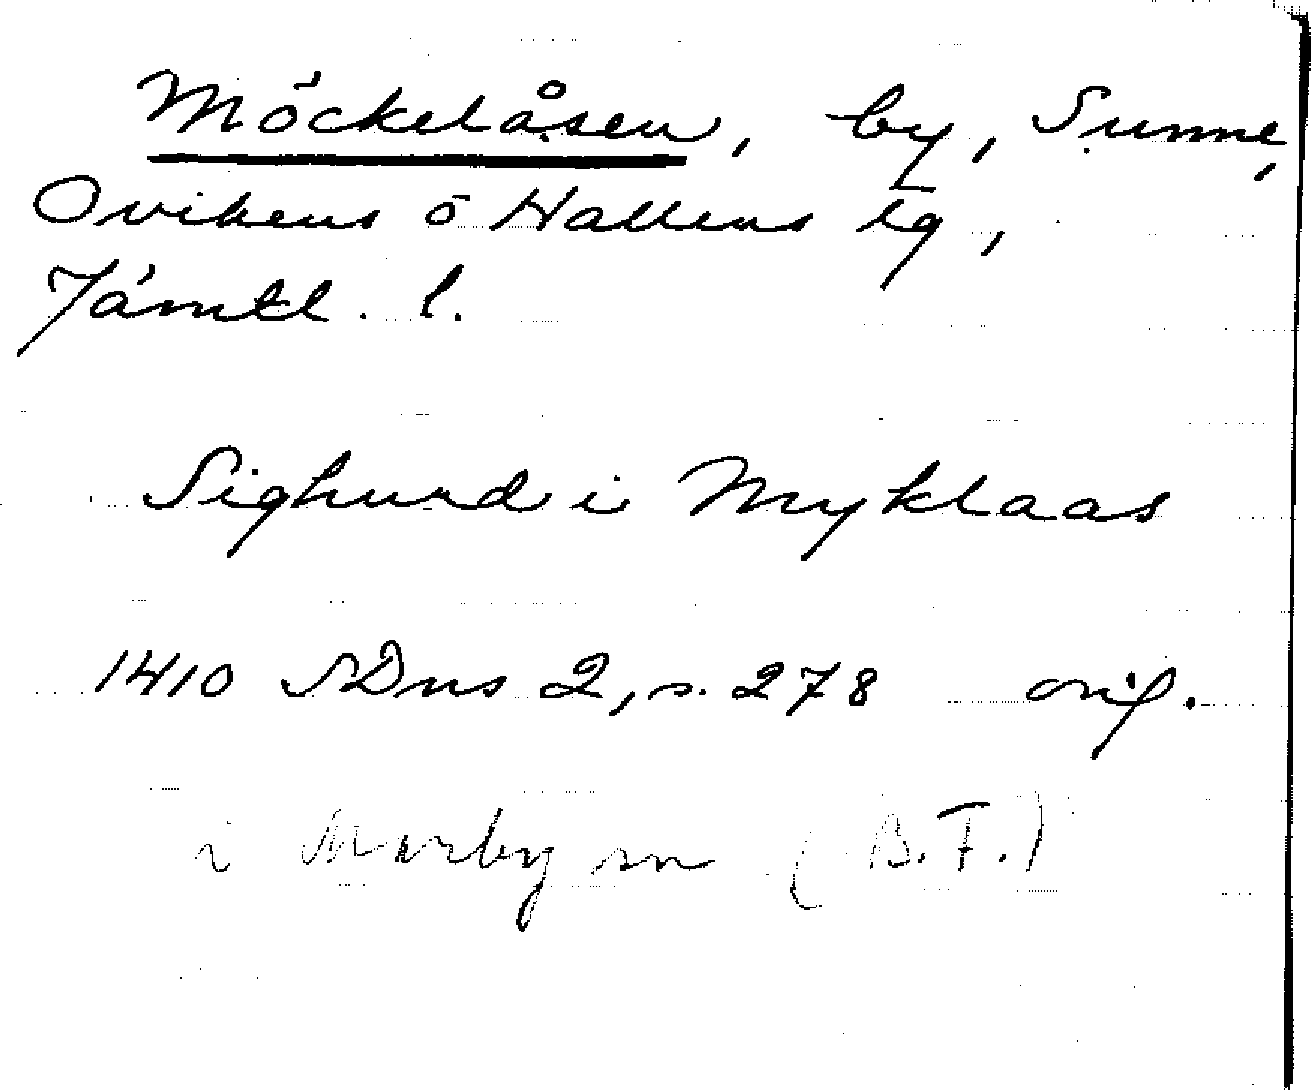 Möckelåsen, by, Sunne,
Ovikens o Hallens tg,
Jämtl. l.
Sighurd i Myklaas
1410 SDns 2, s. 278 orig.
i Marby sn (B.F.)